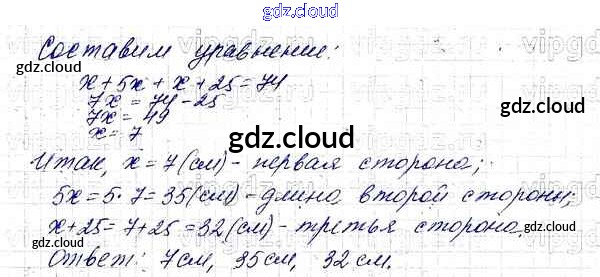 gdz.cloud
Составим уравнение:
x + 5x + x + 25 = 74
7x = 74 - 25
7x = 49
x = 7
Итак, x = 7 (см) - первая сторона;
5x = 5 · 7 = 35 (см) - длина второй стороны;
x + 25 = 7 + 25 = 32 (см) - третья сторона.
Ответ: 7 см, 35 см, 32 см.
gdz.cloud
gdz.cloud
gdz.cloud
gdz.cloud
gdz.cloud
gdz.cloud